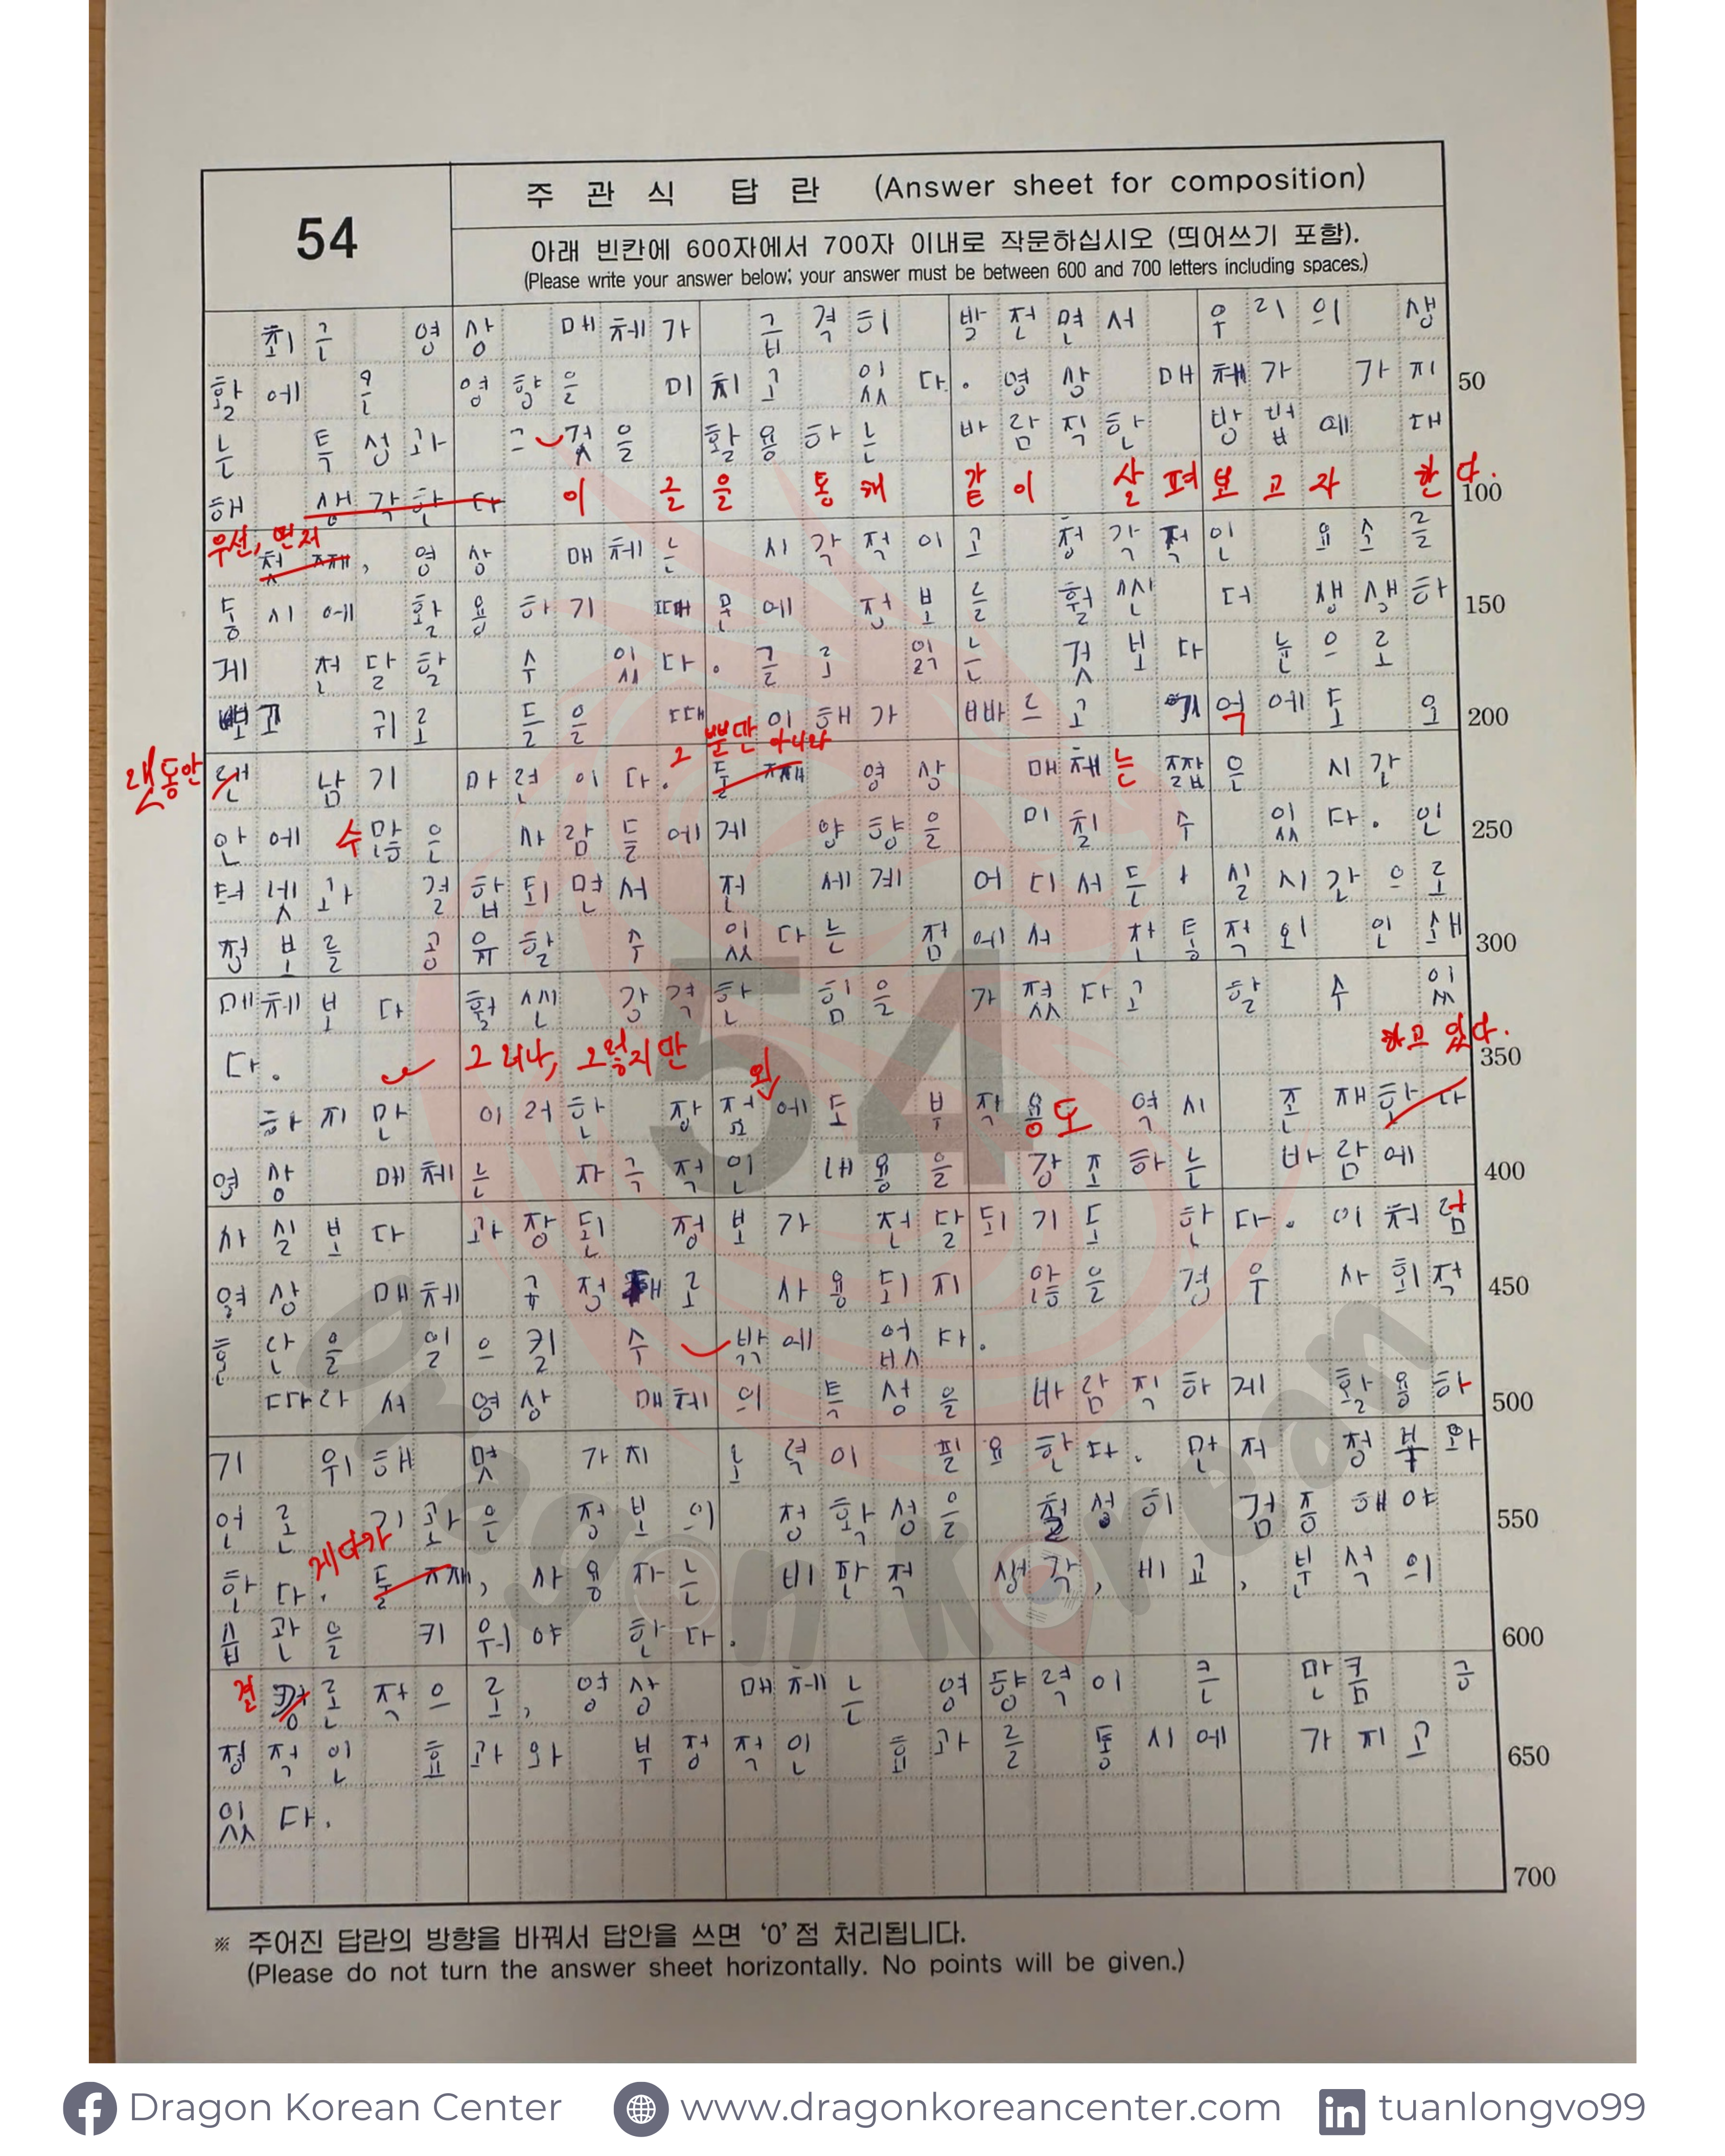 54
주 관 식 답 란 (Answer sheet for composition)
아래 빈칸에 600자에서 700자 이내로 작문하십시오 (띄어쓰기 포함).
(Please write your answer below; your answer must be between 600 and 700 letters including spaces.)
최근 영상 매체가 급격히 발전면서 우리의 생
활에 큰 영향을 미치고 있다. 영상 매체가 가지 50
는 특성과 그 것을 활용하는 바람직한 방법에 대
해 생각한다 이 글을 통해 같이 살펴보고자 한다. 100
우선, 먼저
첫째, 영상 매체는 시각적이고 청각적인 요소를
동시에 활용하기 때문에 정보를 훨씬 더 생생하 150
게 전달할 수 있다. 글로 읽는 것보다 눈으로
보고 귀로 들을 때 이해가 빠르고 기억에도 오 200
그 뿐만 아니라
랫동안 랜 남기 마련이다. 둘째 영상 매체는 짧은 시간
안에 수많은 사람들에게 양향을 미칠 수 있다. 인 250
터넷과 결합되면서 전 세계 어디서든 실시간으로
정보를 공유할 수 있다는 점에서 전통적외 인쇄 300
매체보다 훨씬 강격한 힘을 가졌다고 할 수 있
다. 그러나, 그렇지만 하고 있다. 350
하지만 이러한 장점에도 부작용도 역시 존재한다
영상 매체는 자극적인 내용을 강조하는 바람에 400
사실보다 과장된 정보가 전달되기도 한다. 이처럼
영상 매체 사용되지 않을 경우 사회적 450
혼란을 일으킬 수 밖에 없다.
따라서 영상 매체의 특성을 바람직하게 활용하 500
기 위해 몇 가지 노력이 필요한다. 먼저 정부와
언론 기관은 정보의 정확성을 철성히 검증해야 550
게다가
한다. 둘째, 사용자는 비판적 생각, 비교, 분석의
습관을 키워야 한다. 600
결론적으로, 영상 매체는 영향력이 큰 만큼 긍
정적인 효과와 부정적인 효과를 동시에 가지고 650
있다.
700
※ 주어진 답란의 방향을 바꿔서 답안을 쓰면 '0'점 처리됩니다.
(Please do not turn the answer sheet horizontally. No points will be given.)
54
Dragon Korean
Dragon Korean Center
www.dragonkoreancenter.com
tuanlongvo99